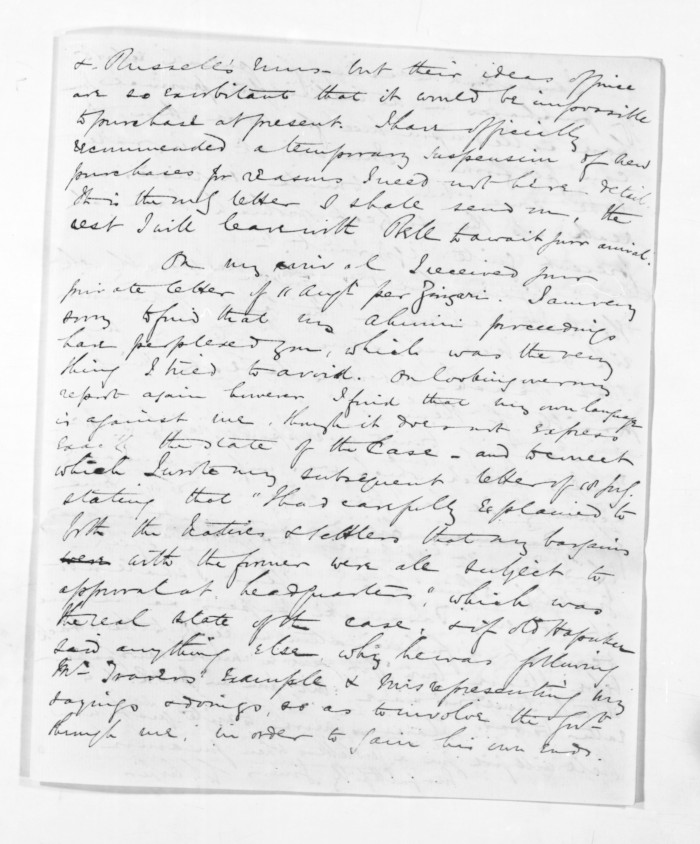 & Russell's runs - but their ideas of price
are so exorbitant that it would be impossible
to purchase at present. I have officially
recommended a temporary suspension of new
purchases for reasons I need not here detail.
It is the only letter I shall send in, the
rest I will leave with Pelle to await your arrival.
On my arrival I received your
private letter of 11 Augt per Zingari. I am very
sorry to find that my Ahuriri proceedings
have perplexed you, which was the very
thing I tried to avoid. On looking over my
report again however I find that my own language
is against me, though it does not express
exactly the state of the Case - and to meet
which I wrote my subsequent letter of 18 July.
stating that "I had carefully explained to
both the Natives & settlers that my bargains
were with the former were all subject to
approval at headquarters," which was
the real state of the case, & if old Hapuku
said anything else why, he was following
Mr Travers' Example & misrepresenting my
sayings & doings, so as to involve the Govt
through me, in order to gain his own ends.